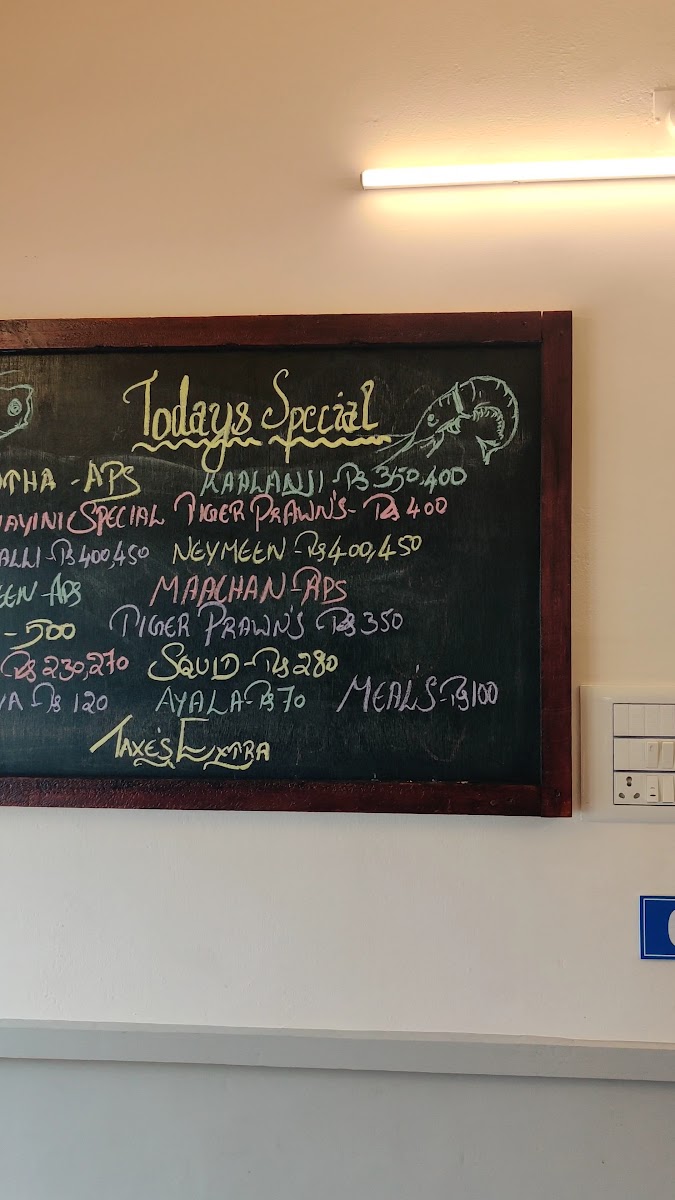 Todays Special
THA - APS KAALANJI - Rs 350,400
AYINI SPECIAL TIGER PRAWN'S - Rs 400
ALLI - Rs 400,450 NEYMEEN - Rs 400,450
EEN APS MAACHAN - APS
- 500 TIGER PRAWN'S - Rs 350
Rs 230,270 SQUID - Rs 280
YA - Rs 120 AYALA - Rs 70 MEAL'S - Rs 100
TAXE'S EXTRA